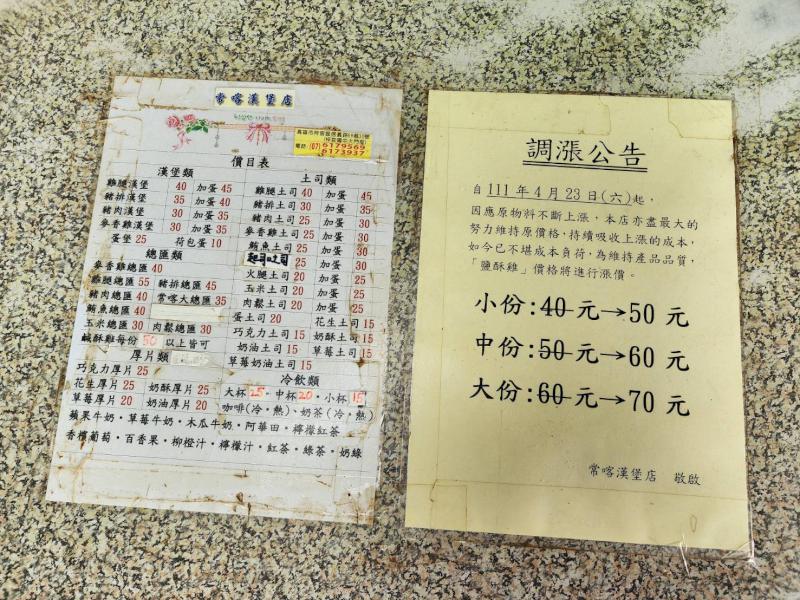 常喀漢堡店
電話:(07)6179569
6173937
價目表
漢堡類
雞腿漢堡 40 加蛋 45
豬排漢堡 35 加蛋 40
豬肉漢堡 30 加蛋 35
麥香雞漢堡 30 加蛋 35
蛋堡 25 荷包蛋 10
總匯類
麥香雞總匯 40
雞腿總匯 55 豬排總匯 45
豬肉總匯 40 常喀大總匯 35
鮪魚總匯 40
玉米總匯 30 肉鬆總匯 30
鹹酥雞每份 50 以上皆可
厚片類
巧克力厚片 25
花生厚片 25 奶酥厚片 25
草莓厚片 20 奶油厚片 20
土司類
雞腿土司 40 加蛋 45
豬排土司 30 加蛋 35
豬肉土司 25 加蛋 30
麥香雞土司 25 加蛋 30
鮪魚土司 25 加蛋 30
起司土司 25 加蛋 30
火腿土司 20 加蛋 25
玉米土司 20 加蛋 25
肉鬆土司 20 加蛋 25
蛋土司 20 花生土司 15
巧克力土司 15 奶酥土司 15
奶油土司 15 草莓土司 15
草莓奶油土司 15
冷飲類
大杯 25・中杯 20・小杯 15
咖啡(冷・熱)、奶茶(冷・熱)
蘋果牛奶・草莓牛奶・木瓜牛奶・阿華田・檸檬紅茶
香檳葡萄・百香果・柳橙汁・檸檬汁・紅茶・綠茶・奶綠
調漲公告
自 111 年 4 月 23 日(六)起,
因應原物料不斷上漲,本店亦盡最大的
努力維持原價格,持續吸收上漲的成本,
如今已不堪成本負荷,為維持產品品質,
「鹽酥雞」價格將進行漲價。
小份:40 元→50 元
中份:50 元→60 元
大份:60 元→70 元
常喀漢堡店 敬啟